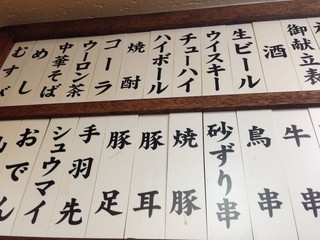 御献立表
酒
生ビール
ウイスキー
チューハイ
ハイボール
焼酎
コーラ
ウーロン茶
中華そば
めし
むすび
牛串
鳥串
砂ずり串
焼豚
豚耳
豚足
手羽先
シュウマイ
おでん